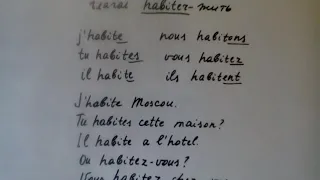 глагол habiter - жить
j'habite nous habitons
tu habites vous habitez
il habite ils habitent
J'habite Moscou.
Tu habites cette maison?
Il habite a l'hotel.
Ou habitez-vous?
Nous habitons chez